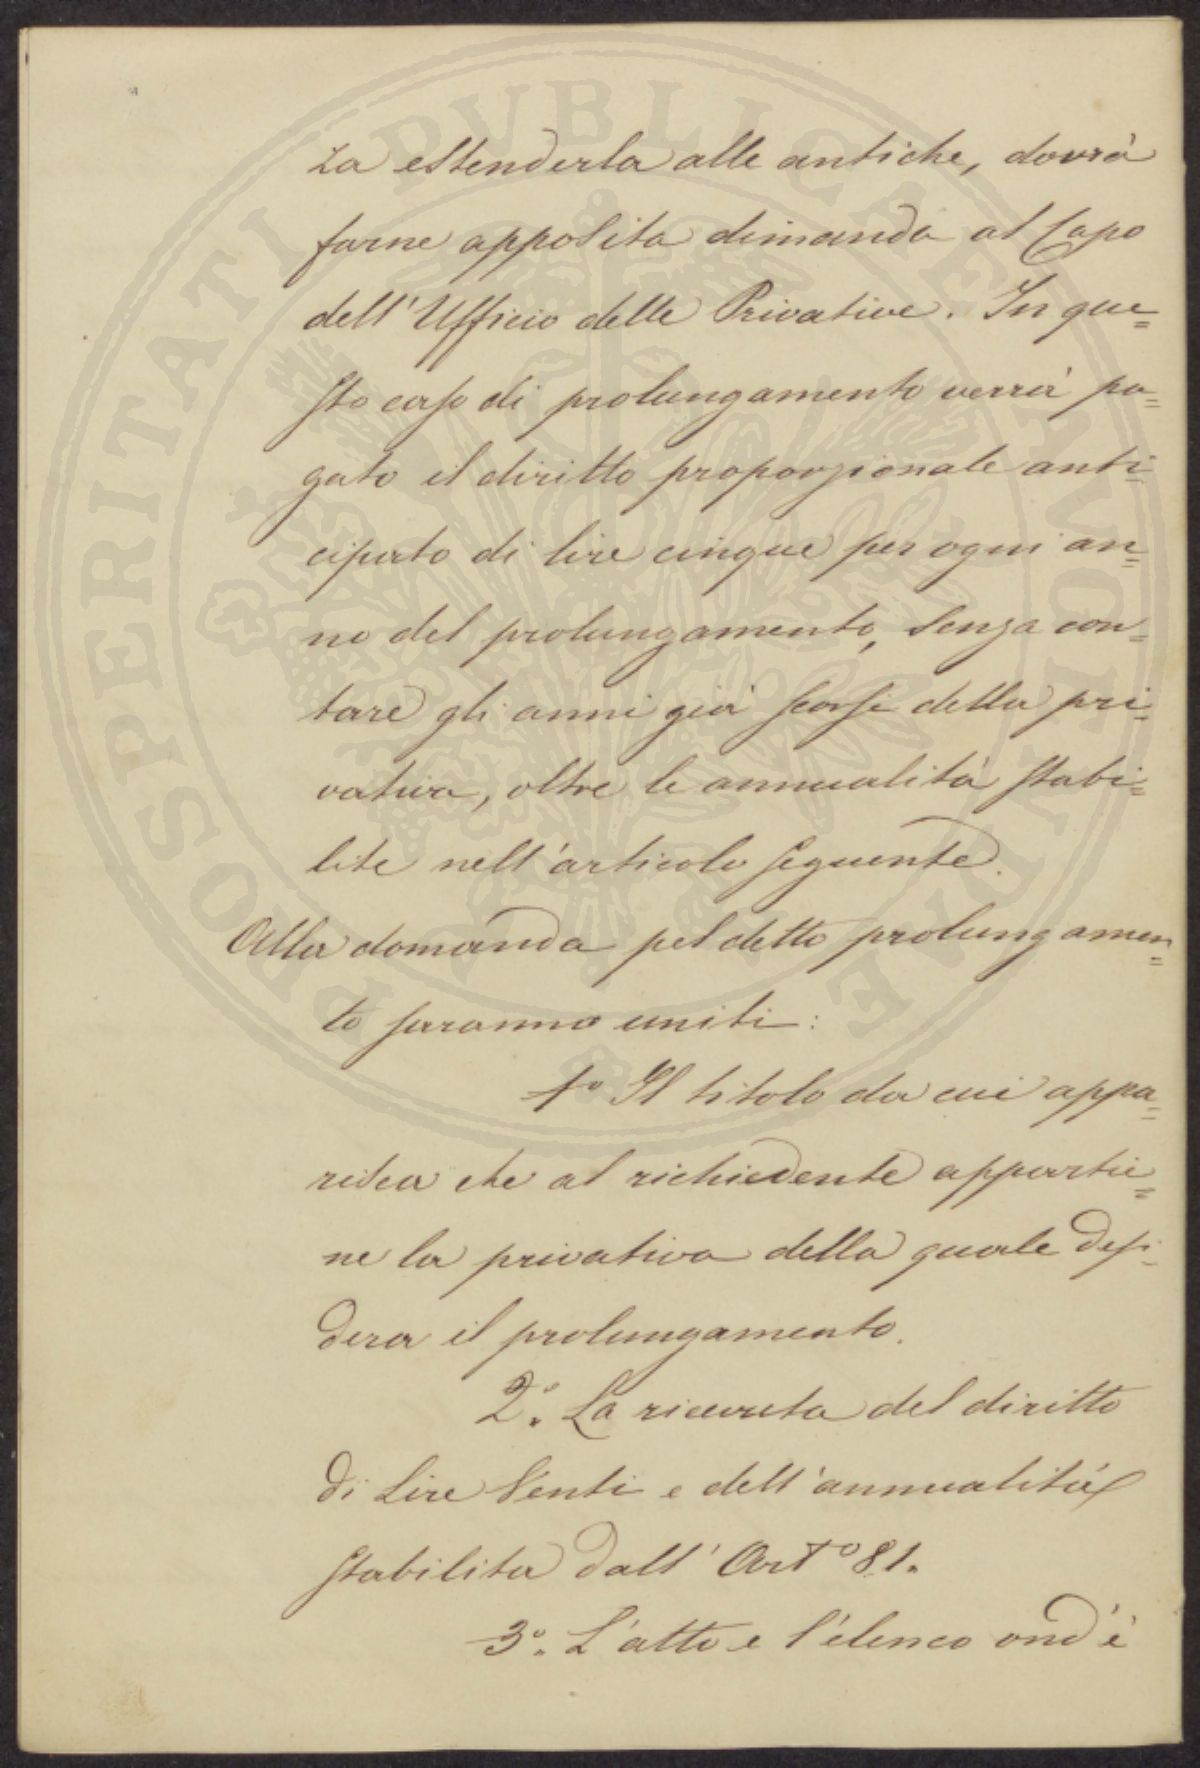 za estenderla alle antiche, dovrà
farne apposita dimanda al Capo
dell'Ufficio delle Privative. In que=
sto caso di prolungamento verrà pa=
gato il diritto proporzionale anti=
cipato di lire cinque per ogni an=
no del prolungamento, senza con=
tare gli anni già scorsi della pri=
vativa, oltre le annualità stabi=
lite nell'articolo seguente.
Alla domanda pel detto prolungamen=
to saranno uniti:
1º Il titolo da cui appa=
risca che al richiedente appartie=
ne la privativa della quale desi=
dera il prolungamento.
2º. La ricevuta del diritto
di Lire Venti e dell'annualità
stabilita dall'Artº 81.
3º. L'atto e l'élenco ond'è
PROSPERITATI PVBLICAE AVGENDAE